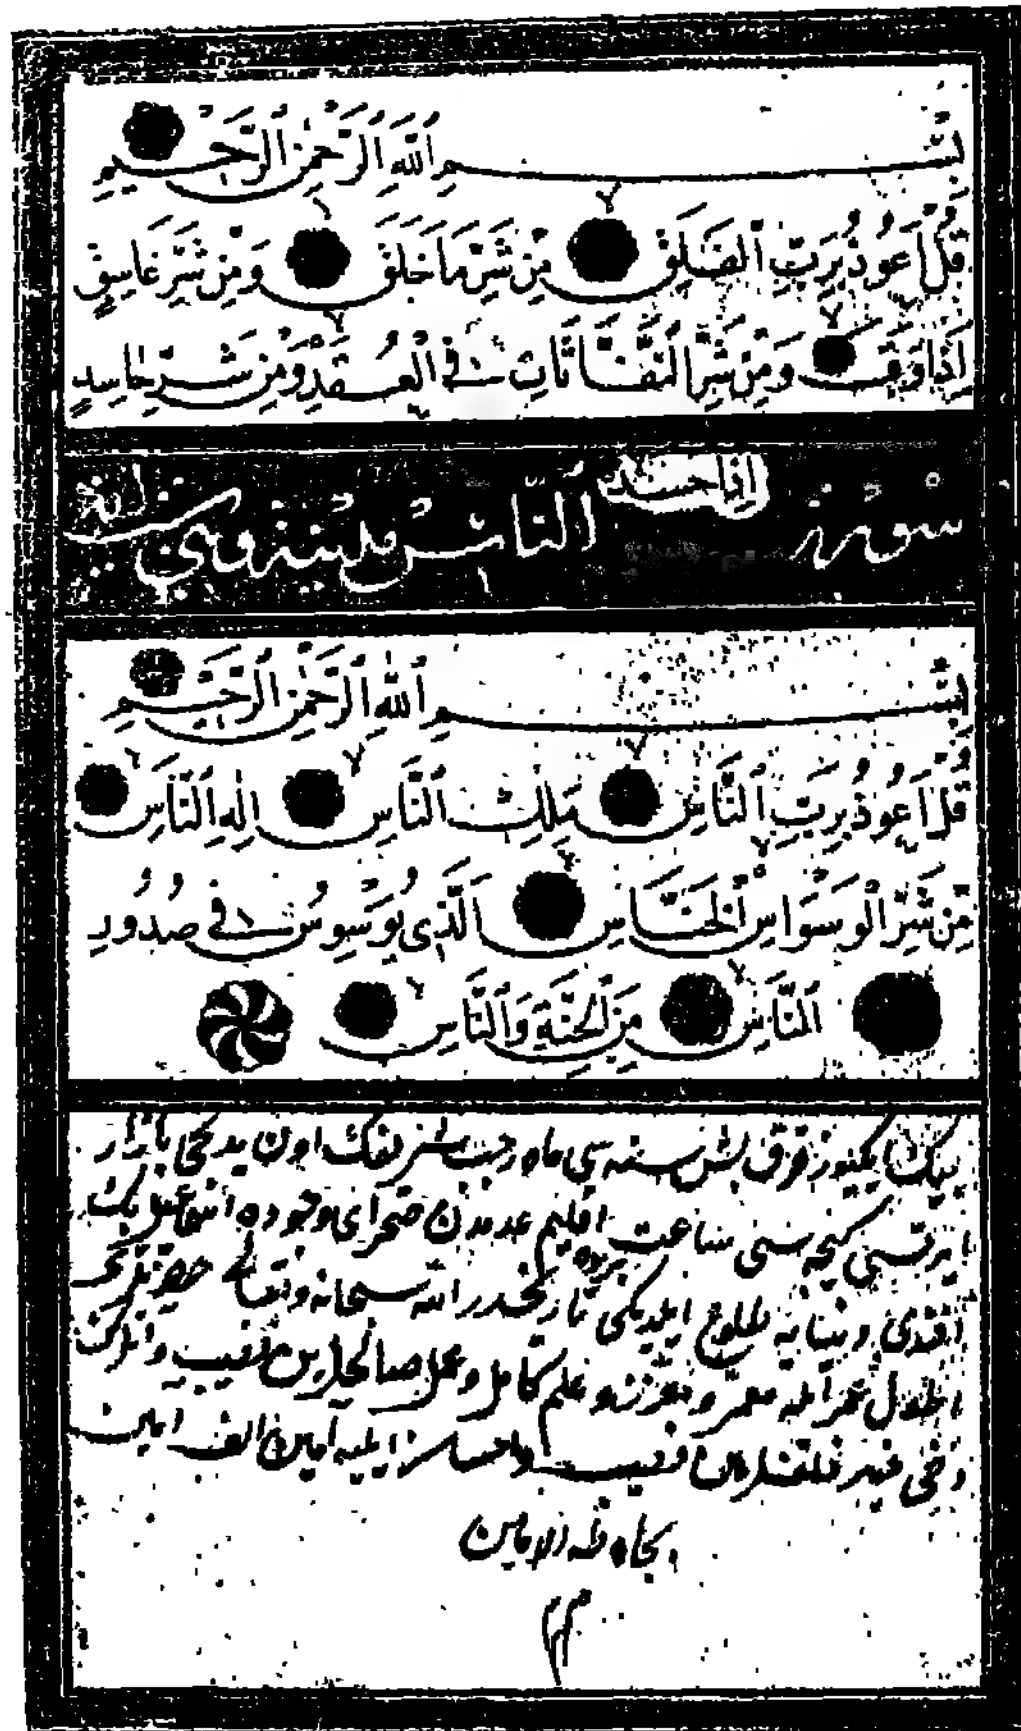 بِسْمِ اللّٰهِ الرَّحْمٰنِ الرَّحِيمِ
قُلْ اَعُوذُ بِرَبِّ الْفَلَقِ مِنْ شَرِّ مَا خَلَقَ وَمِنْ شَرِّ غَاسِقٍ
اِذَا وَقَبَ وَمِنْ شَرِّ النَّفَّاثَاتِ فِي الْعُقَدِ وَمِنْ شَرِّ حَاسِدٍ
اِذَا حَسَدَ
سورة النَّاس مدينة وهي
بِسْمِ اللّٰهِ الرَّحْمٰنِ الرَّحِيمِ
قُلْ اَعُوذُ بِرَبِّ النَّاسِ مَلِكِ النَّاسِ اِلٰهِ النَّاسِ
مِنْ شَرِّ الْوَسْوَاسِ الْخَنَّاسِ اَلَّذِي يُوَسْوِسُ فِي صُدُورِ
النَّاسِ مِنَ الْجِنَّةِ وَالنَّاسِ
بيك ايكيوز قرق بش سنه سى ماه رجب الشريفك اون يدنجى بازار
ايرتسى كيجه سى ساعت اقليم عدمدن صحراى وجوده اسماعيل بك
افندى دنيايه طلوع ايلديكى تاريخدر الله سبحانه وتعالى حضرتلرى
طول عمر ايله معمر و علم كامل وعمل صالح
دخى امين الف امين
بجاه طه الامين
م م